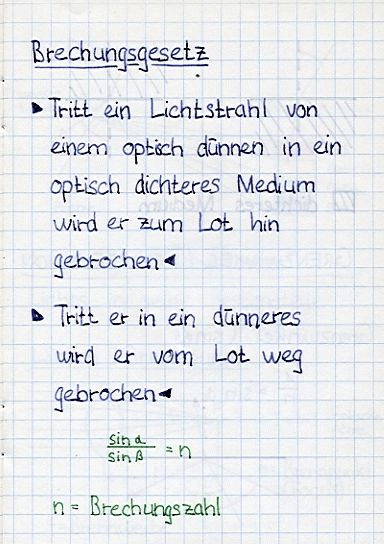 Brechungsgesetz
▶ Tritt ein Lichtstrahl von
einem optisch dünnen in ein
optisch dichteres Medium
wird er zum Lot hin
gebrochen ◀
▶ Tritt er in ein dünneres
wird er vom Lot weg
gebrochen ◀
sin α / sin β = n
n = Brechungszahl